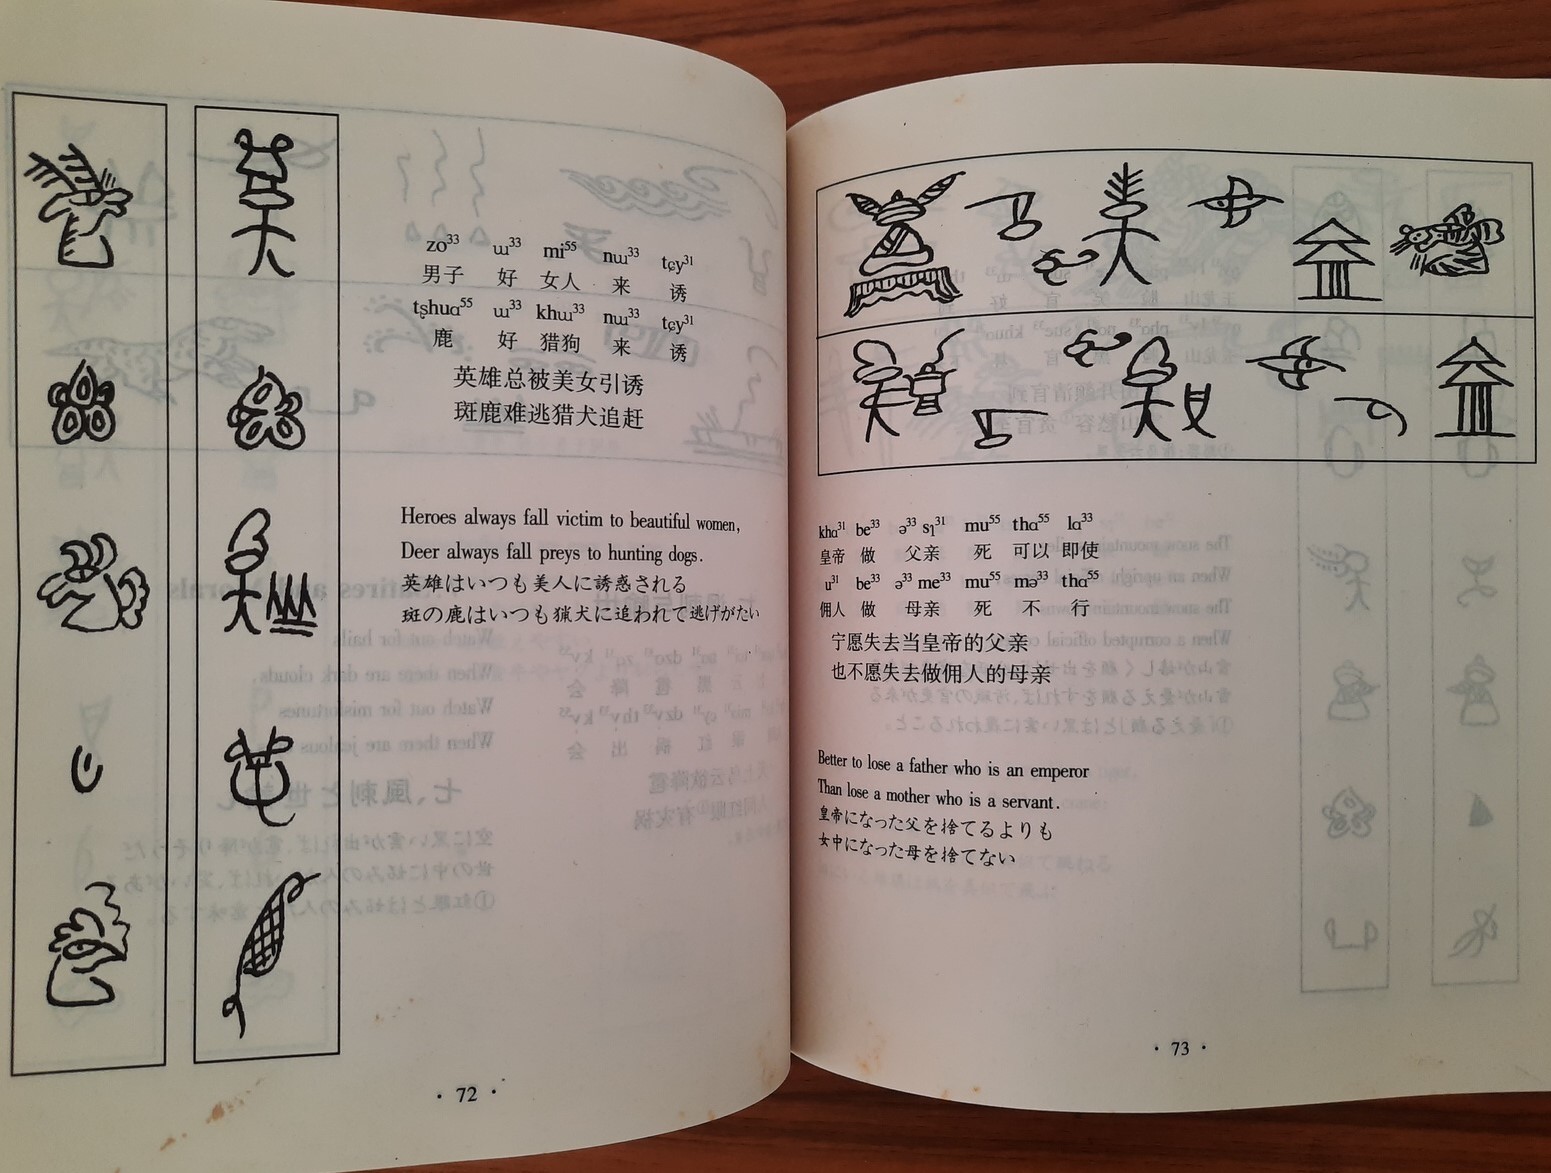 zo³³ ɯ³³ mi⁵⁵ nɯ³³ tɕy³¹
男子 好 女人 来 诱
tʂhuɑ⁵⁵ ɯ³³ khɯ³³ nɯ³³ tɕy³¹
鹿 好 猎狗 来 诱
英雄总被美女引诱
斑鹿难逃猎犬追赶
Heroes always fall victim to beautiful women,
Deer always fall preys to hunting dogs.
英雄はいつも美人に誘惑される
斑の鹿はいつも猟犬に追われて逃げがたい
· 72 ·
khɑ³¹ be³³ ə³³ sɿ³¹ mu⁵⁵ thɑ⁵⁵ lɑ³³
皇帝 做 父亲 死 可以 即使
u³¹ be³³ ə³³ me³³ mu⁵⁵ mə³³ thɑ⁵⁵
佣人 做 母亲 死 不 行
宁愿失去当皇帝的父亲
也不愿失去做佣人的母亲
Better to lose a father who is an emperor
Than lose a mother who is a servant.
皇帝になった父を捨てるよりも
女中になった母を捨てない
· 73 ·